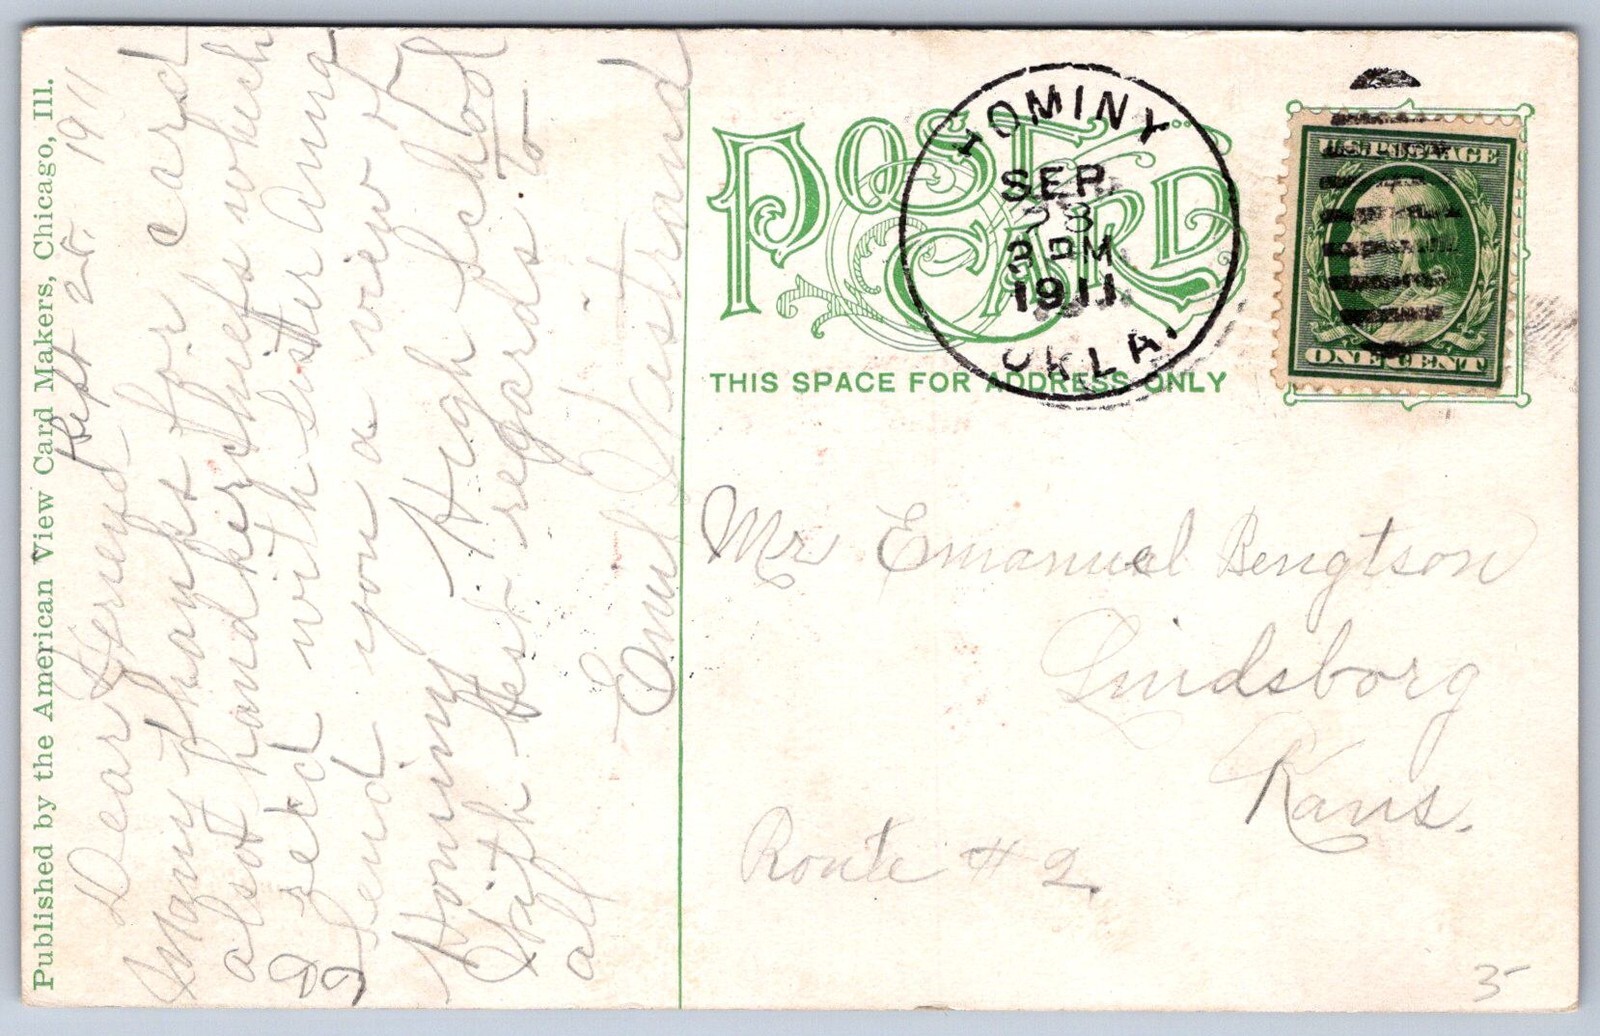 Published by the American View Card Makers, Chicago, Ill.
Sept 25. 1911
Dear Freiend
Many thanks for card
also handkerchiefs which
I recd with sister Anna
I send you a view of
Hominy High School
With best regards to
all
Emil
POST CARD
THIS SPACE FOR ADDRESS ONLY
HOMINY
SEP
3 PM
1911
OKLA.
U.S. POSTAGE
ONE CENT
Mr Emanuel Bengtson
Lindsborg
Kans.
Route # 2.
35